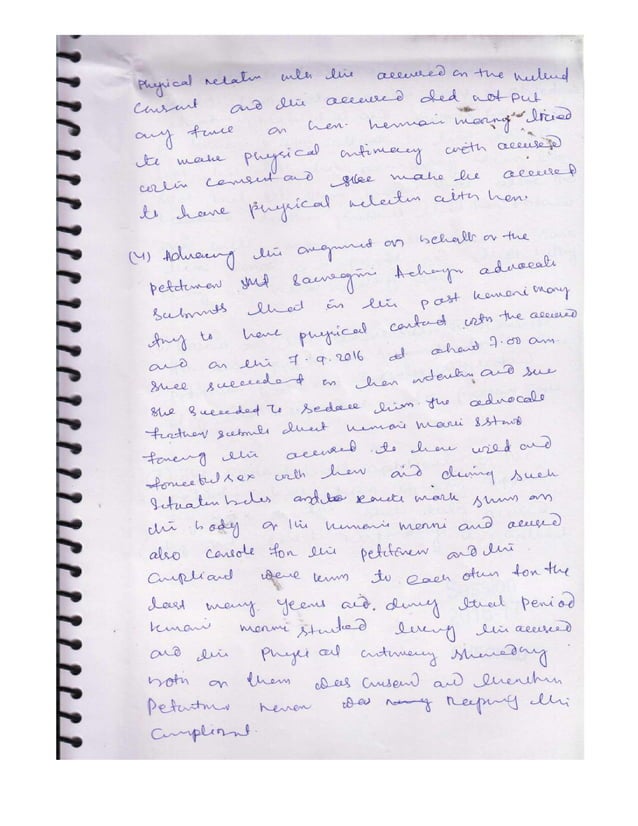 Physical relation with the accused on the mutual
consent and the accused did not put
any force on her. Kumari started
to make physical intimacy with accused
with consent and she make the accused
to have physical relation with her.
(4) Advancing the argument on behalf on the
Petitioner Smt advocate
submits that in the past Kumari
try to have physical contact with the accused
and on the 7.9.2016 at about 7.00 am
She succeeded in her intention and she
She Succeeded to seduce him. The advocate
further submits that Kumari started
forcing the accused to have wild and
forceful sex with her and during such
Situation bites and marks shown on
the body of the Kumari and accused
also for the petitioner and the
Compliant were known to each other for the
last many years and during that period
Kumari started loving the accused
and the Physical intimacy
both of them was consent and therefore
Petitioner never was raping the
Compliant.